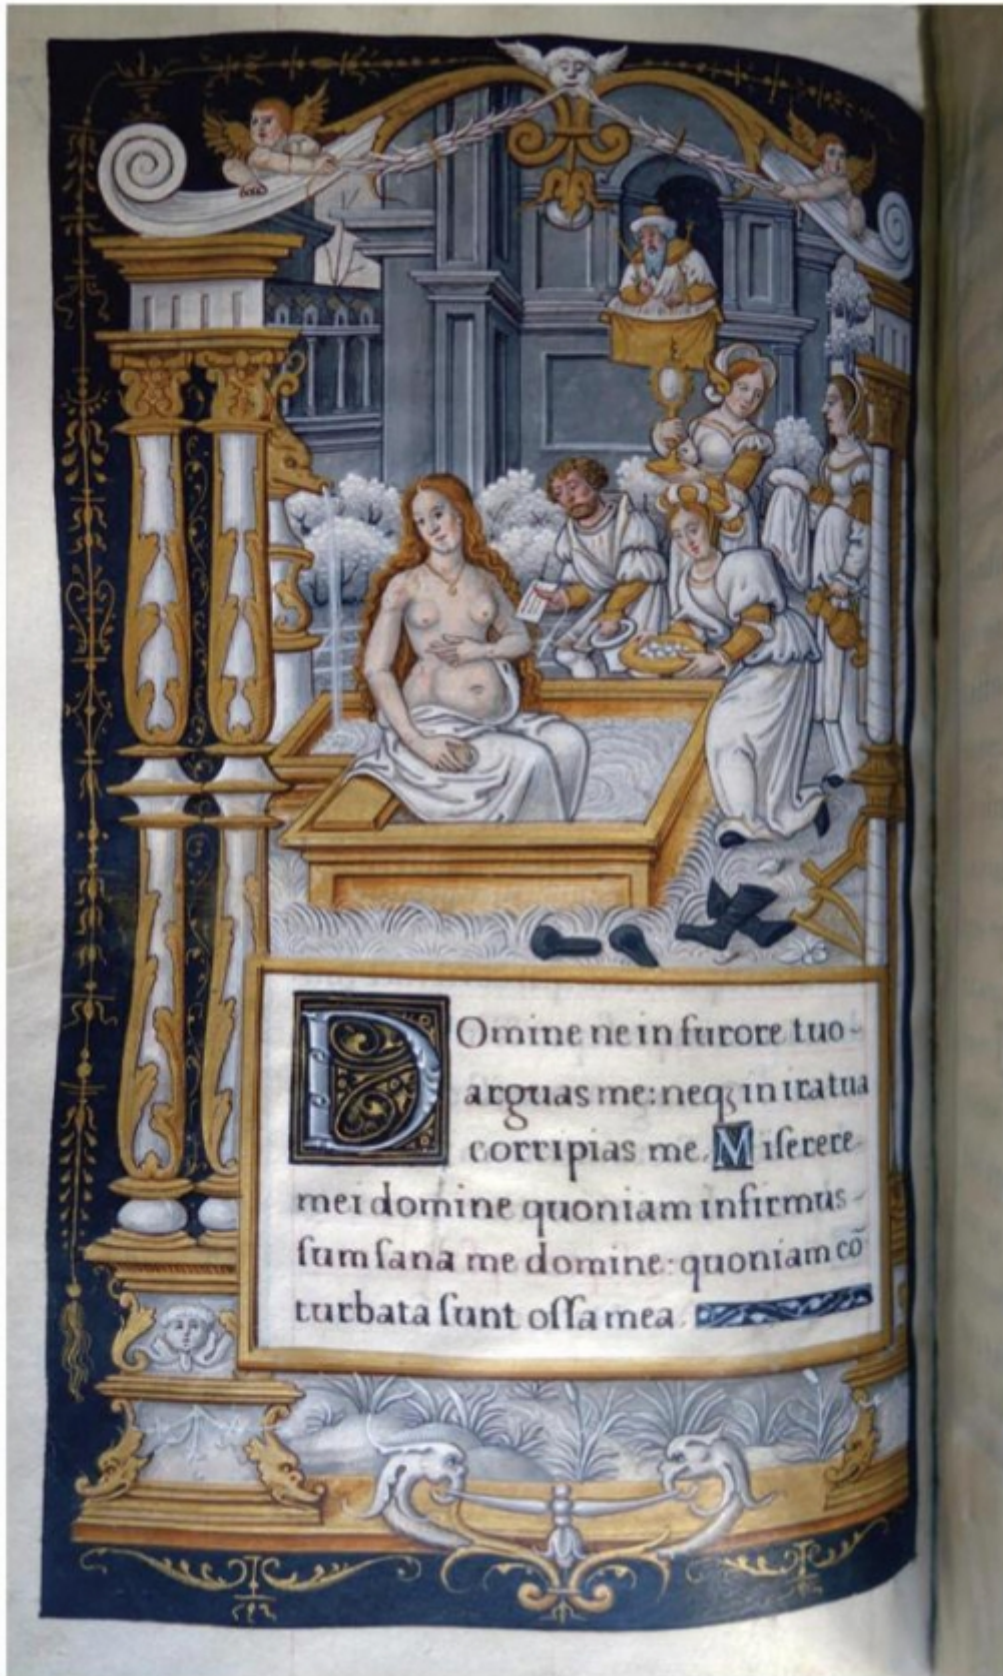 Domine ne in furore tuo
arguas me: neqʒ in ira tua
corripias me. Miserere
mei domine quoniam infirmus
sum sana me domine: quoniam cō
turbata sunt ossa mea.